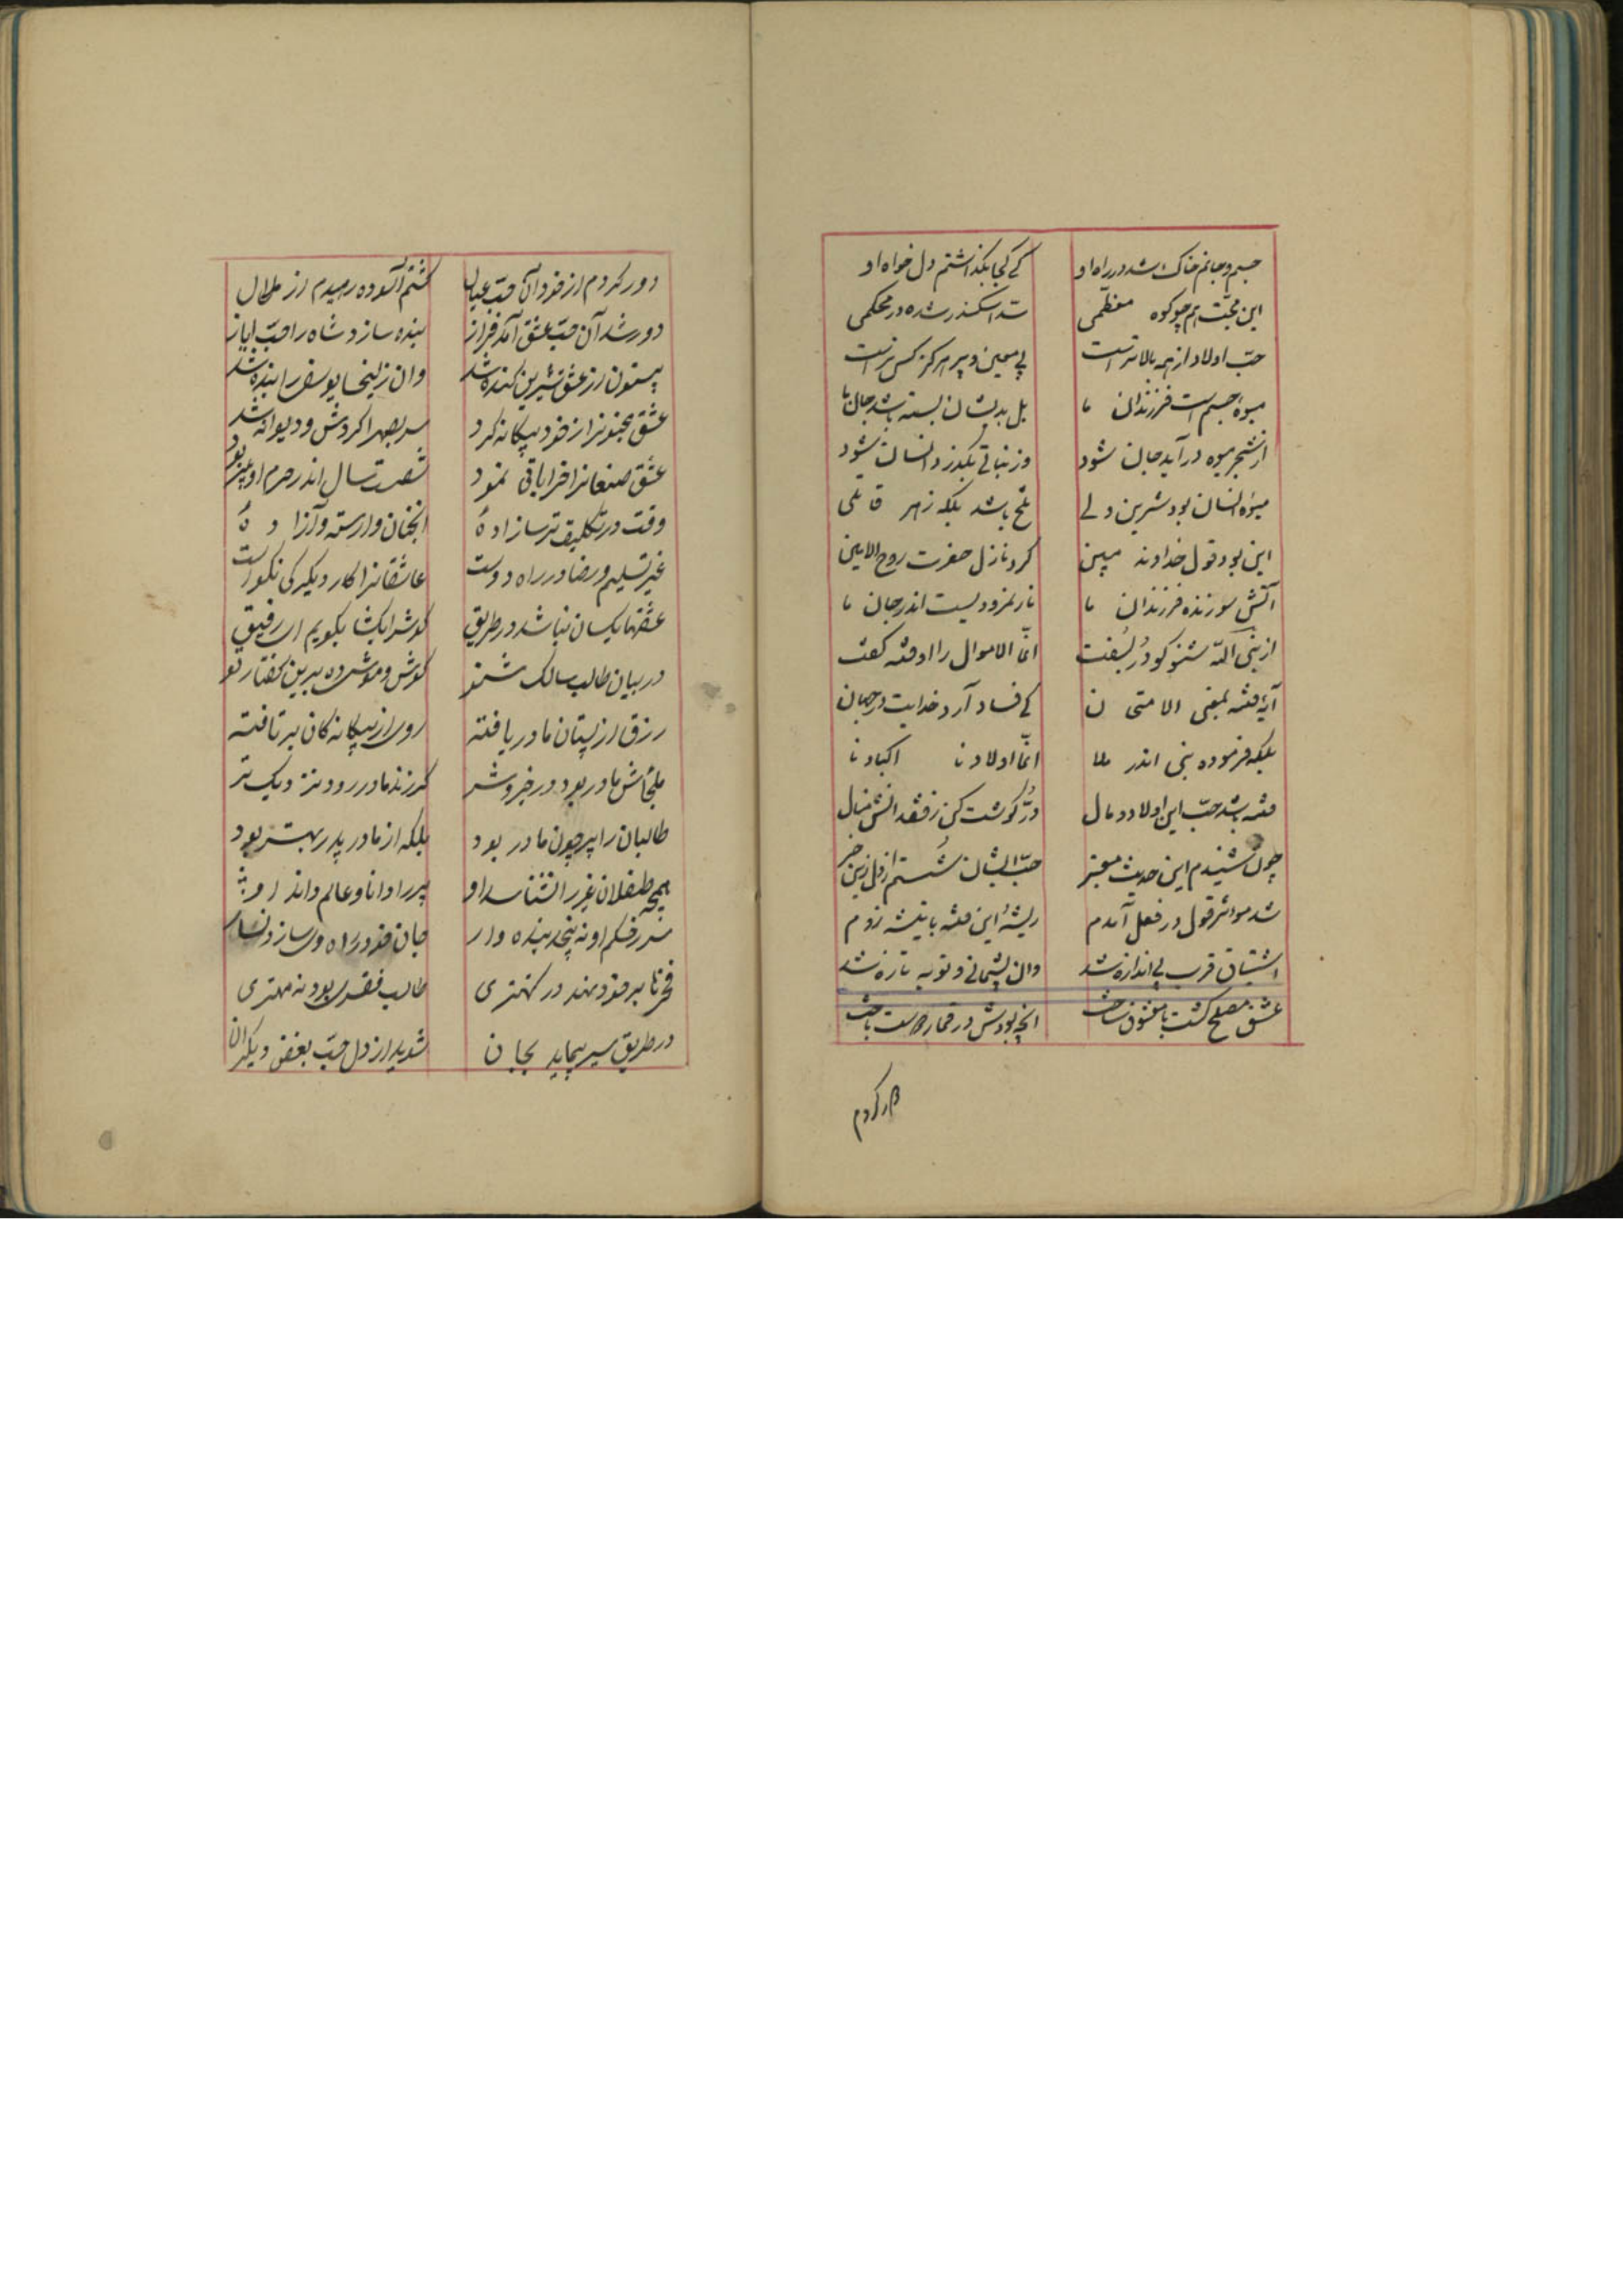 جسم و جانم خاک شد در راه او
کی کجا بگذاشتم دل خواه او
این محبت هم چو کوه معظمی
سد اسکندر شده در محکمی
حبّ اولاد از همه بالاتر است
بی معین و پیر هرگز کس نرست
میوهٔ جسم است فرزندان ما
بل بدیشان بسته باشد جان ما
از شجر میوه درآید جان شود
وز نباتی بگذرد انسان شود
میوهٔ انسان بود شیرین ولی
تلخ باشد بلکه زهر قاتلی
این بود قول خداوند مبین
کرد نازل حضرت روح الامین
آتش سوزنده فرزندان ما
نار نمرودیست اندر جان ما
از نبی الله شنو کو دُر بسفت
انّما الاموال را او فتنه گفت
آیهٔ فتنه بمعنی الامتحان
کی فساد آرد خدایت در جهان
بلکه فرموده نبی اندر ملا
انّما اولادنا اکبادنا
فتنه باشد حبّ این اولاد و مال
دُرّ گوشت کن ز فقد آتش منال
چون شنیدم این حدیث معتبر
حبّ ایشان شستم از دل زین خبر
شد موثر قول در فعل آمدم
ریشهٔ این فتنه با تیشه زدم
اشتیاق قرب بی اندازه شد
وان پشیمانی و توبه تازه شد
عشق مصلح گشت با معشوق ساخت
انچه بودش در قمار باخت
دور کردم
دور کردم از خود آن حبّ عیال
گشتم آسوده رهیدم از ملال
دور شد آن حبّ عشق آمد فراز
بنده سازد شاه را حبّ ایاز
بیستون از عشق شیرین کنده شد
وان زلیخا یوسف را بنده شد
عشق مجنونرا ز خود بیگانه کرد
سر بصحرا کردش و دیوانه شد
عشق صنعانرا خراباتی نمود
شصت سال اندر حرم او پیر بود
وقت در تکلیف ترسازادهٔ
آنچنان وارسته و آزادهٔ
غیر تسلیم و رضا در راه دوست
عاشقانرا کار دیگر کی نکوست
عشقها یکسان نباشد در طریق
گوش را بگشا بگویم ای رفیق
در بیان طالب سالک شنو
گوش و هوش ده برین گفتار نو
رزق از پستان مادر یافته
روی از بیگانه‌گان برتافته
ملجأش مادر بود در خیر و شر
گر زند مادر رود نزدیک تر
طالبان را پیر چون مادر بود
بلکه از مادر پدر بهتر بود
همچو طفلان غیر را نشناسد او
پیر را دانا و عالم داند او
سر ز حکم او نه پیچد بنده وار
جان خود در راه وی سازد نثار
فخرنا بر خود نهد در کهتری
طالب فقر بود نه مهتری
در طریق سیر پیماید بجان
شوید از دل حبّ بغض دیگران